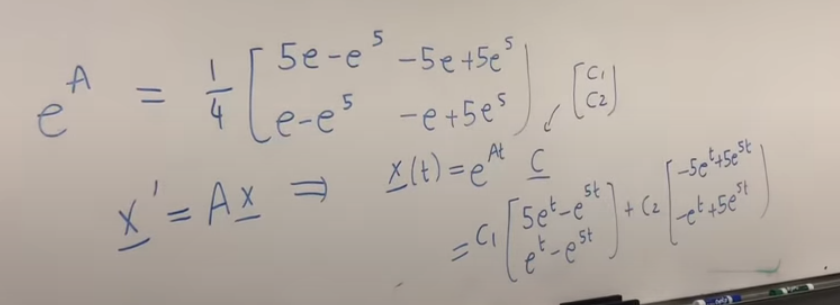 e^A = 1/4 [ 5e-e^5  -5e+5e^5 ; e-e^5  -e+5e^5 ]
[ C1 ; C2 ]
x' = Ax ⇒ x(t) = e^{At} C
= C1 [ 5e^t-e^{5t} ; e^t-e^{5t} ] + C2 [ -5e^t+5e^{5t} ; -e^t+5e^{5t} ]